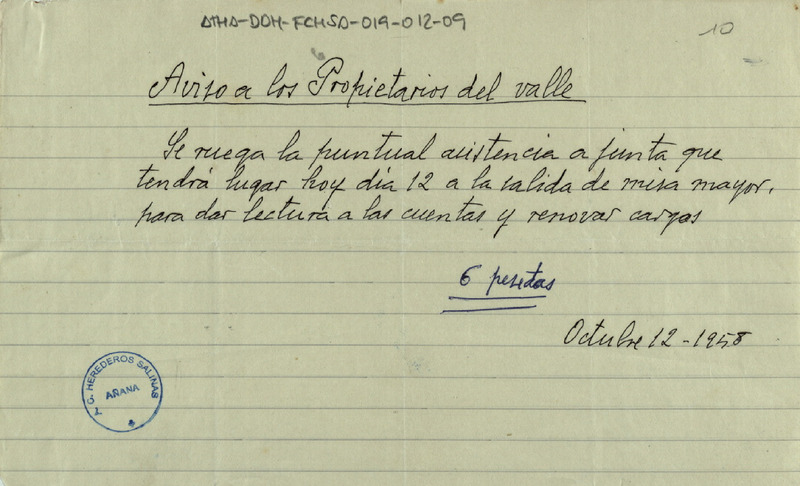 ATHA-DDH-FCHSA-019-012-09
10
Aviso a los Propietarios del valle
Se ruega la puntual asistencia a junta que
tendrá lugar hoy día 12 a la salida de misa mayor,
para dar lectura a las cuentas y renovar cargos
6 pesetas
Octubre 12-1958
T. G. HEREDEROS SALINAS
AÑANA